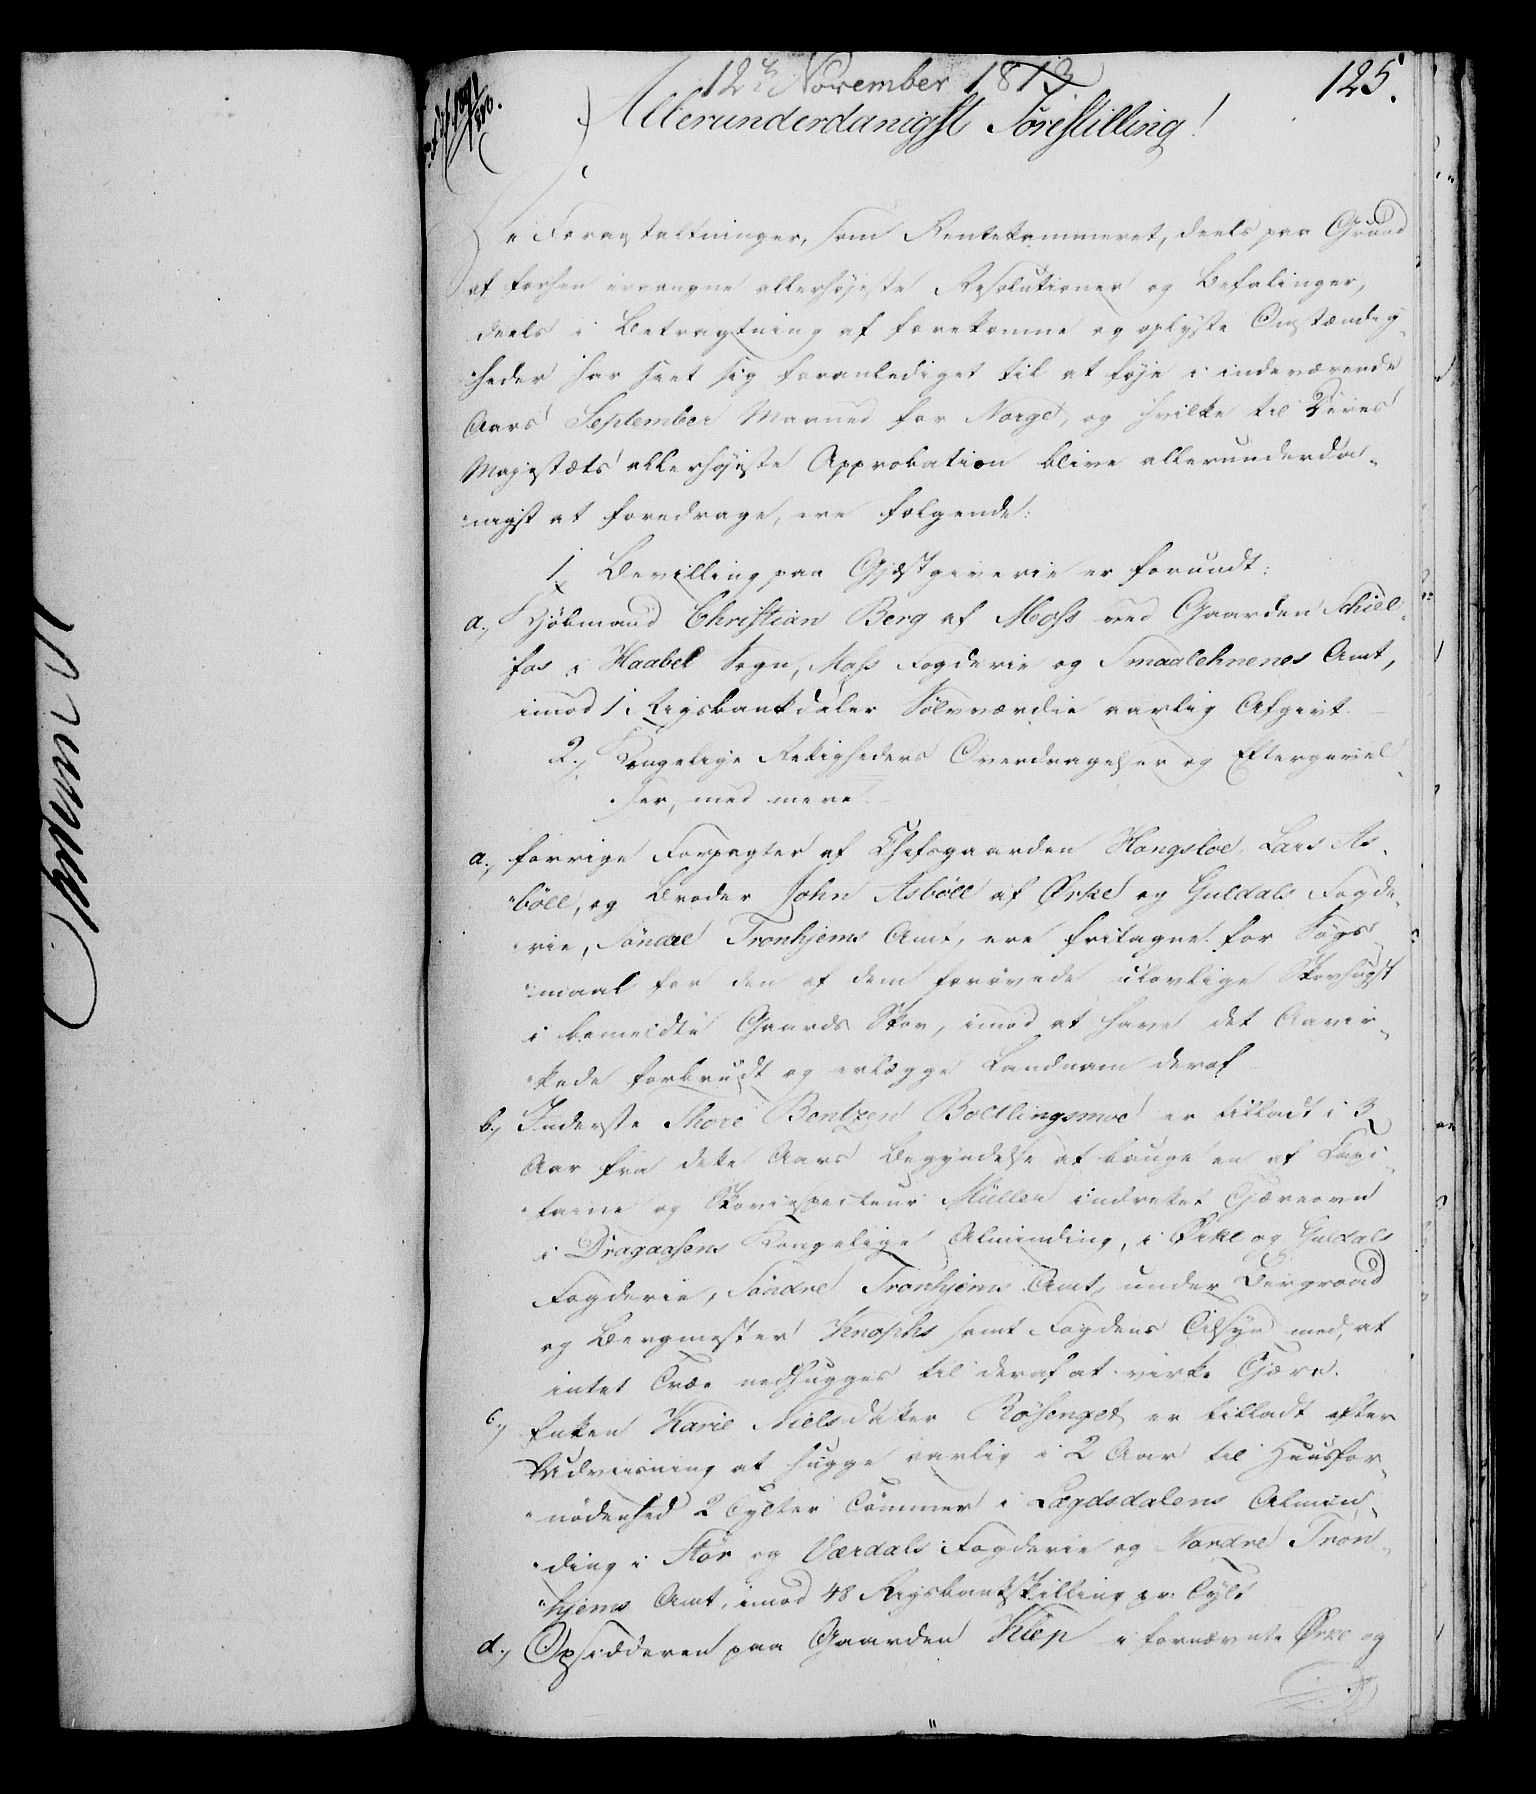 12te November 1813.
125.
Allerunderdanigst Forestilling!
De Foranstaltninger, som Rentekammeret, deels paa Grund
af forhen ergangne allerhøjeste Resolutioner og Befalinger,
deels i Betragtning af forekomne og oplyste Omstændig-
heder har seet sig foranlediget til at føje i indeværende
Aars September Maaned for Norge, og hvilke til Deres
Majestæts allerhøjeste Approbation blive allerunderda-
nigst at foredrage, ere følgende:
1, Bevilling paa Gjæstgiverie er forundt:
a., Kjøbmand Christian Berg af Moss ved Gaarden Schiel-
fos i Haabel Sogn, Moss Fogderie og Smaalehnenes Amt,
imod 1 Rigsbankdaler Sølvværdie aarlig Afgivt.
2., Kongelige Rettigheders Overdragelser og Eftergivel-
ser, med mere.
a., forrige Forpagter af Chefsgaarden Hangsloe, Lars As-
bøll, og Broder John Asbøll af Ørke og Guldals Fogde-
rie, Søndre Tronhjems Amt, ere fritagne for Søgs-
maal for den af dem forøvede ulovlige Skovhugst
i bemeldte Gaards Skov, imod at have det Aavir-
kede forbrudt og erlægge Landnam deraf
b., Inderste Thore Bentzen Bollingsmoe er tilladt i 3
Aar fra dette Aars Begyndelse at bruge en af Capi-
taine og Skovinspecteur Müller indrettet Tjæreovn
i Dragaasens Kongelige Alminding, i Ørke og Guldals
Fogderie, Søndre Tronhjems Amt, under Bergraad
og Bergmester Knophs samt Fogdens Tilsyn med, at
intet Træe nedhugges til deraf at virke Tjære.
c., Enken Karie Nielsdatter Røsenget er tilladt efter
Udviisning at hugge aarlig i 2 Aar til Huusfor-
nødenhed 2 Tylter Tømmer i Lægdsdalens Almin-
ding i Stør og Værdals Fogderie og Nordre Tron-
hjems Amt, imod 48 Rigsbankskilling pr. Tylt
d., Opsidderen paa Gaarden Klep i fornævnte Ørke og